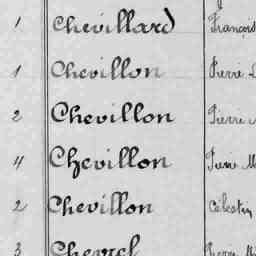 1 Chevillard François
1 Chevillon Pierre
2 Chevillon Pierre
4 Chevillon Pierre M
2 Chevillon Célestin
3